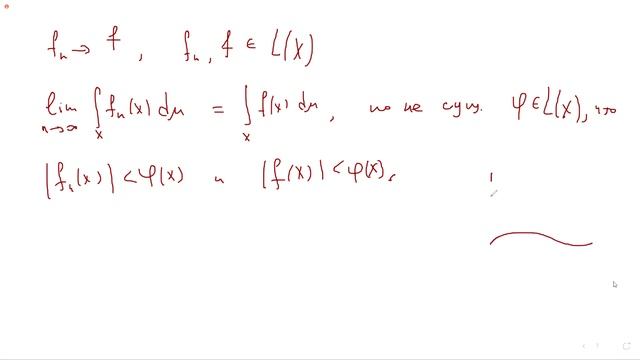 fₙ → f, fₙ, f ∈ L(X)
lim n→∞ ∫_X fₙ(x) dμ = ∫_X f(x) dμ, но не сущ. φ ∈ L(X), что
|fₙ(x)| < φ(x) и |f(x)| < φ(x).